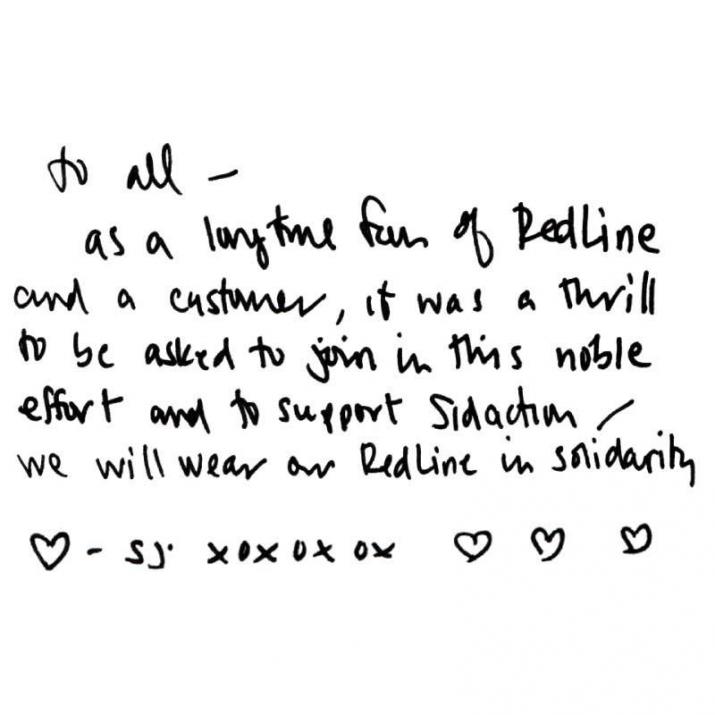 to all –
as a longtime fan of RedLine
and a customer, it was a thrill
to be asked to join in this noble
effort and to support Sidaction /
we will wear our RedLine in solidarity
♡ - SJ. xoxoxox ♡ ♡ ♡